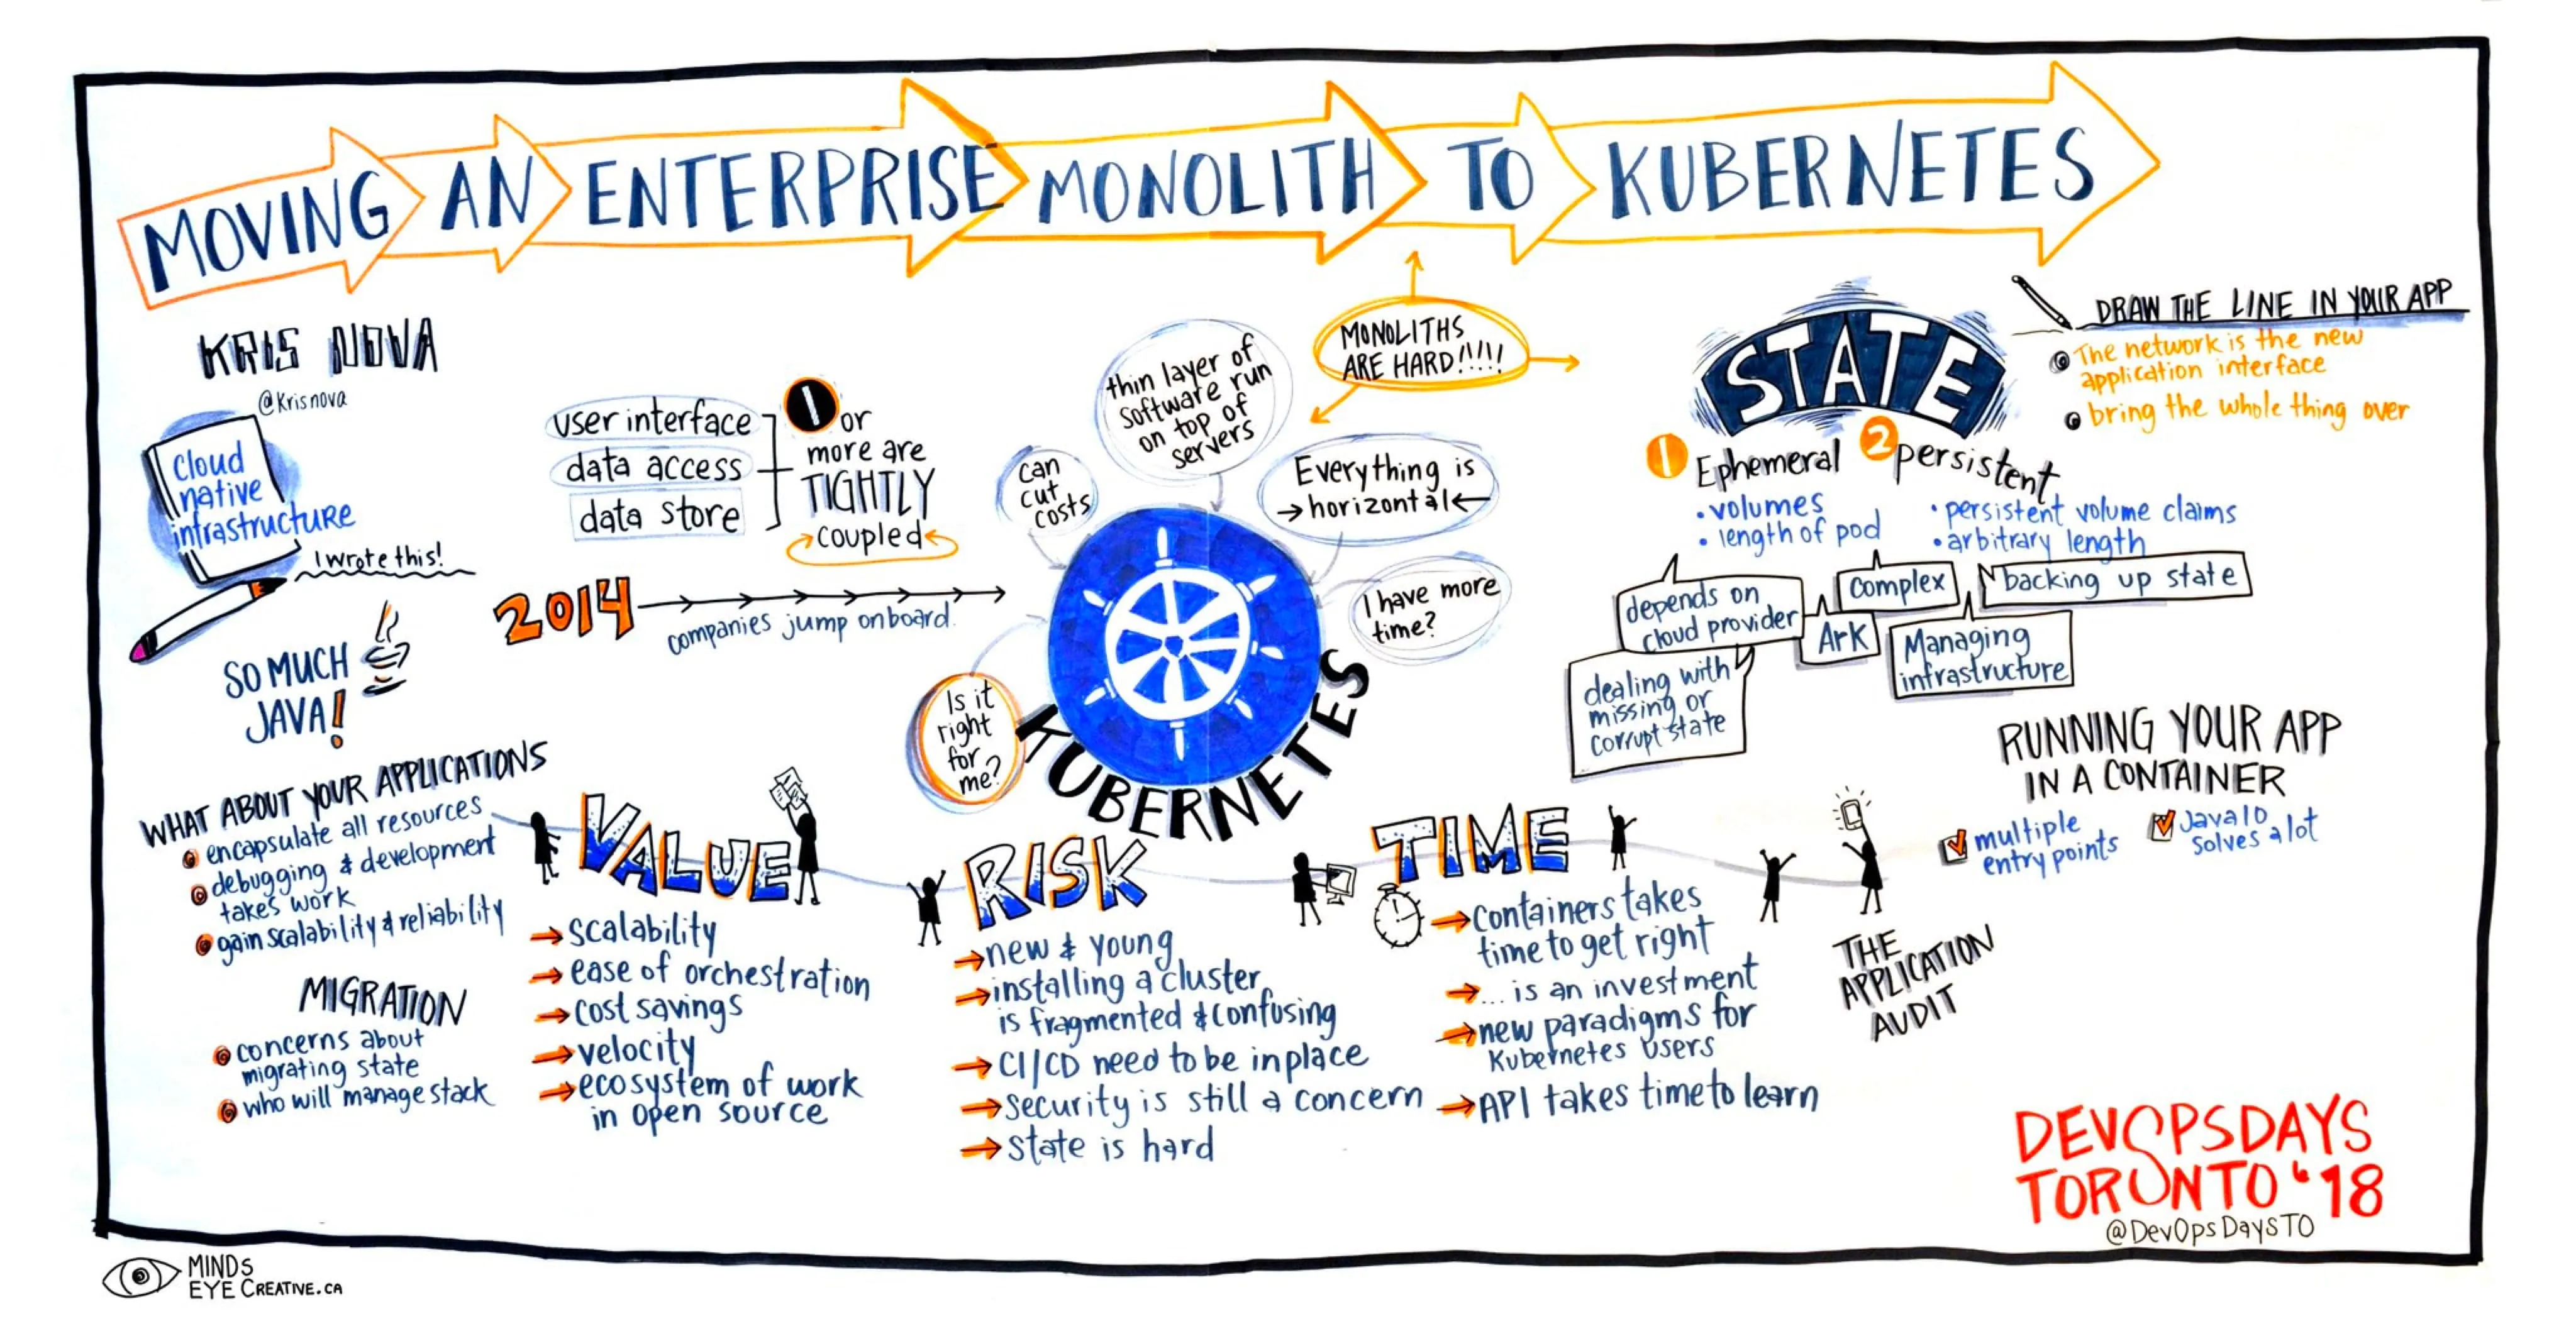 MOVING AN ENTERPRISE MONOLITH TO KUBERNETES
KRIS NOVA
@Krisnova
Cloud
native
infrastructure
I wrote this!
SO MUCH
JAVA!
user interface
data access
data store
1 or
more are
TIGHTLY
coupled
2014
companies jump onboard.
can
cut
costs
thin layer of
software run
on top of
servers
MONOLITHS
ARE HARD!!!!!
Everything is
horizontal
I have more
time?
Is it
right
for
me?
KUBERNETES
STATE
1 Ephemeral
• volumes
• length of pod
2 persistent
• persistent volume claims
• arbitrary length
depends on
cloud provider
complex
backing up state
Ark
Managing
infrastructure
dealing with
missing or
corrupt state
DRAW THE LINE IN YOUR APP
The network is the new
application interface
bring the whole thing over
RUNNING YOUR APP
IN A CONTAINER
multiple
entry points
Java 10
solves a lot
WHAT ABOUT YOUR APPLICATIONS
encapsulate all resources
debugging & development
takes work
gain scalability & reliability
MIGRATION
concerns about
migrating state
who will manage stack
VALUE
→ scalability
→ ease of orchestration
→ cost savings
→ velocity
→ ecosystem of work
in open source
RISK
→ new & young
→ installing a cluster
is fragmented & confusing
→ CI/CD need to be in place
→ security is still a concern
→ state is hard
TIME
→ containers takes
time to get right
→ ... is an investment
→ new paradigms for
Kubernetes users
→ API takes time to learn
THE
APPLICATION
AUDIT
DEVOPSDAYS
TORONTO '18
@DevOpsDaysTO
MINDS
EYE CREATIVE.CA